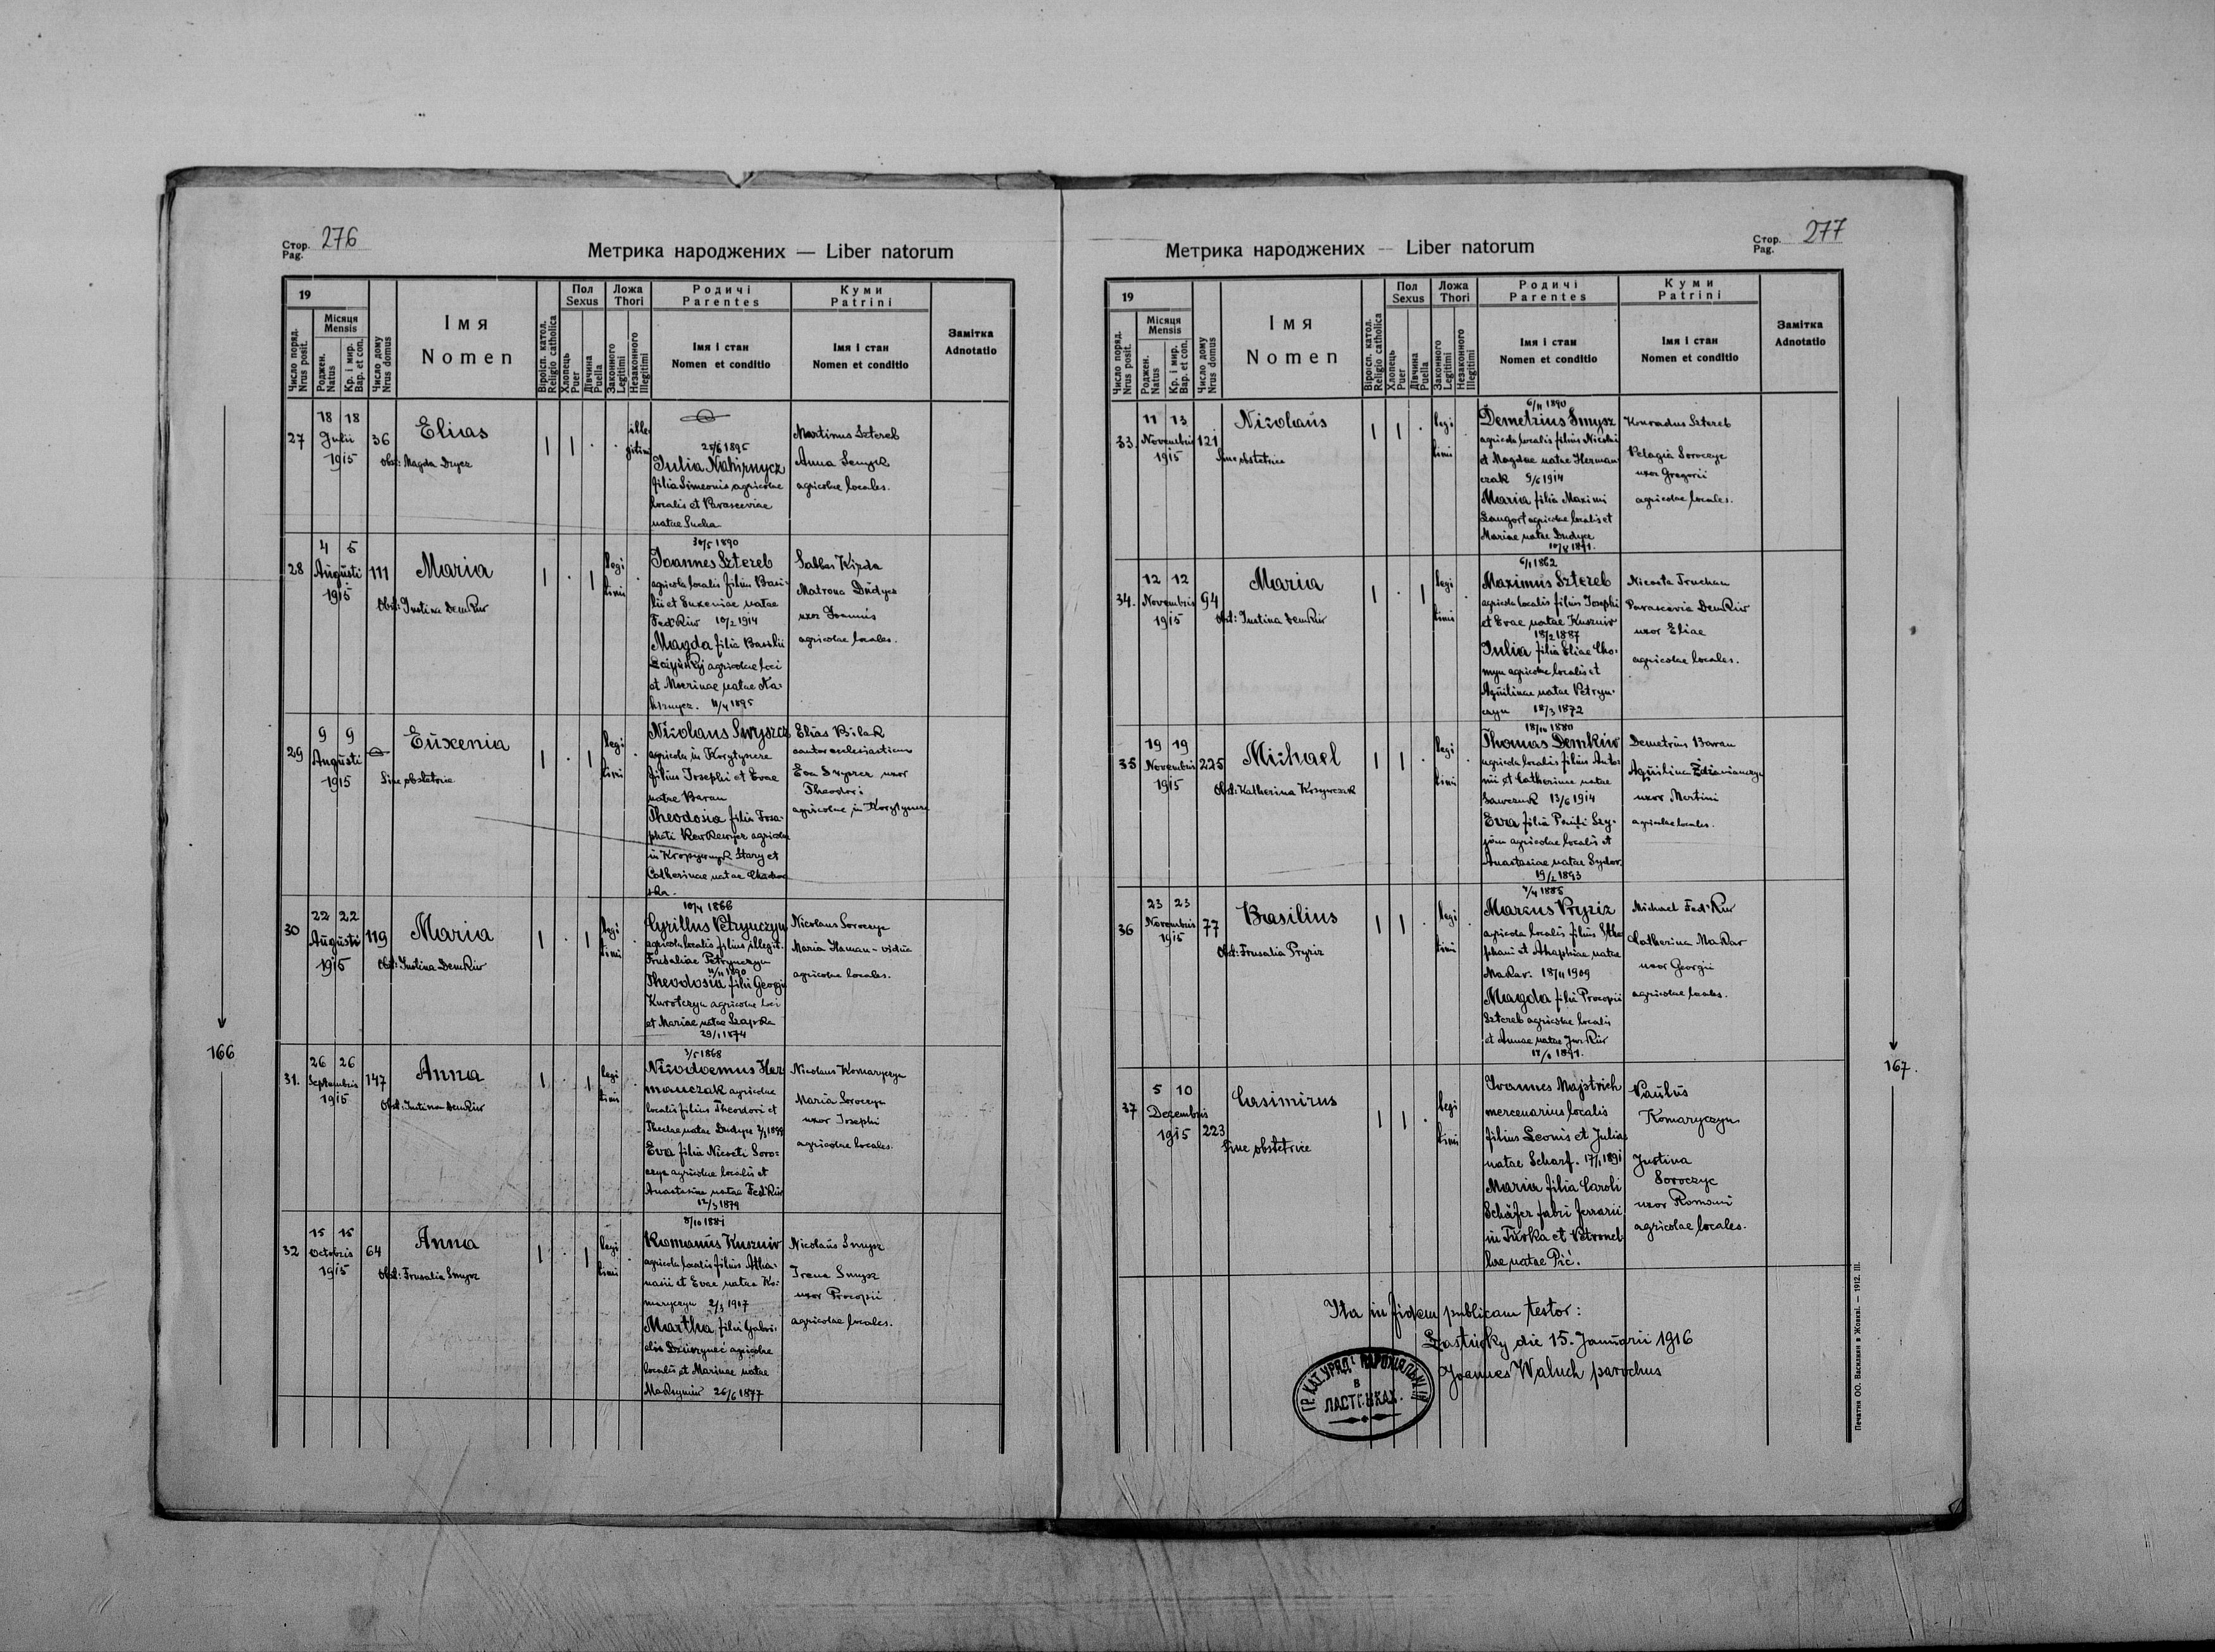 Стор. Pag. 276
Метрика народжених — Liber natorum
19
Число поряд. Nrus posit.
Місяця Mensis
Роджен. Natus
Кр. і мир. Bap. et con.
Число дому Nrus domus
Імя
Nomen
Віроісп. катол. Religio catholica
Пол Sexus
Хлопець Puer
Дівчина Puella
Ложа Thori
Законного Legitimi
Незаконного Illegitimi
Родичі Parentes
Імя і стан
Nomen et conditio
Куми Patrini
Імя і стан
Nomen et conditio
Замітка
Adnotatio
27
18 18
Julii
1915
36
Elias
Obst: Magda Dycz
ille
gitimi
25/6 1895
Julia Nahirnycz
filia Simeonis agricolae
localis et Parasceviae
natae Sucha
Martinus Sztereb
Anna Semyk
agricolae locales.
28
4 5
Augusti
1915
111
Maria
Obst: Justina Demkiw
legi
timi
30/5 1890
Joannes Sztereb
agricola localis filius Basi-
lii et Euxeniae natae
Fedkiw 10/2 1914
Magda filia Basilii
agricolae loci
et Marinae natae Na-
hirnycz. 11/4 1895
Sabbas Kizda
Matrona Dudycz
uxor Joannis
agricolae locales.
29
9 9
Augusti
1915
Euxenia
Sine obstetrice
legi
timi
Nicolaus Smyszcz
agricola in Korytyszcze
filius Josephi et Evae
natae Baran
Theodosia filia Josa-
phati agricolae
in Kropywnyk Stary et
Catherinae natae
ska.
Elias Bilak
cantor ecclesiasticus
Eva uxor
Theodori
agricolae in
30
22 22
Augusti
1915
119
Maria
Obst: Justina Demkiw
legi
timi
10/4 1866
Cyrillus Petrynczyn
agricola localis filius illegit.
Frusaliae Petrynczyn
11/11 1890
Theodosia filia Georgii
Kurotczyn agricolae loci
et Mariae natae
29/1 1874
Nicolaus Soroczyc
Maria Haman - vidua
agricolae locales.
31.
26 26
Septembris
1915
147
Anna
Obst: Justina Demkiw
legi
timi
3/5 1868
Nicodoemus Her
manczak agricolae
localis filius Theodori et
Theclae natae Dudycz 3/3 1899
Eva filia Nicetae Soro-
czyc agricolae localis et
Anastasiae natae Fedkiw
12/3 1879
Nicolaus Komaryczyn
Maria Soroczyc
uxor Josephi
agricolae locales.
32
15 15
Octobris
1915
64
Anna
Obst: Frusalia Smysz
legi
timi
8/10 1881
Romanus Kusznir
agricola localis filius Atha-
nasii et Evae natae Ko-
maryczyn 2/3 1907
Martha filia Gabri-
elis agricolae
localis et Marinae natae
Maksymiw 26/6 1877
Nicolaus Smysz
Irena Smysz
uxor Procopii
agricolae locales.
166
Стор. Pag. 277
Метрика народжених — Liber natorum
19
Число поряд. Nrus posit.
Місяця Mensis
Роджен. Natus
Кр. і мир. Bap. et con.
Число дому Nrus domus
Імя
Nomen
Віроісп. катол. Religio catholica
Пол Sexus
Хлопець Puer
Дівчина Puella
Ложа Thori
Законного Legitimi
Незаконного Illegitimi
Родичі Parentes
Імя і стан
Nomen et conditio
Куми Patrini
Імя і стан
Nomen et conditio
Замітка
Adnotatio
33.
11 13
Novembris
1915
121
Nicolaus
Sine obstetrice
legi
timi
6/11 1890
Demetrius Smysz
agricola localis filius Nicolai
et Magdae natae Herman-
czak 5/6 1914
Maria filia Maximi
agricolae localis et
Mariae natae Dudycz
10/8 1891.
Konradus Sztereb
Pelagia Soroczyc
uxor Gregorii
agricolae locales.
34.
12 12
Novembris
1915
94
Maria
Obst: Justina Demkiw
legi
timi
6/1 1862
Maximus Sztereb
agricola localis filius Josephi
et Evae natae Kusznir
18/2 1887
Julia filia Eliae Cho-
myn agricolae localis et
Aquilinae natae Petryn-
czyn 12/3 1872
Niceta Truchan
Parascevia Demkiw
uxor Eliae
agricolae locales.
35
19 19
Novembris
1915
225
Michael
Obst: Katherina
legi
timi
18/10 1880
Thomas Demkiw
agricola localis filius Anto-
nii et Catherinae natae
Sawczuk 13/6 1914
Eva filia Pauli Szy-
agricolae localis et
Anastasiae natae Sydor.
19/2 1893
Demetrius Baran
Aquilina
uxor Martini
agricolae locales.
36
23 23
Novembris
1915
77
Basilius
Obst: Frusalia Pryziz
legi
timi
7/4 1885
Marcus Pryziz
agricola localis filius Ste-
phani et Ahaphiae natae
Makar. 18/11 1909
Magda filia Procopii
Sztereb agricolae localis
et Annae natae Jurkiw
Michael Fedkiw
Catherina Makar
uxor Georgii
agricolae locales.
37
5 10
Dezembris
1915
223
Casimirus
Sine obstetrice
legi
timi
Ioannes Majstrich
mercenarius localis
filius Leonis et Julia
natae Scharf. 17/1 1891
Maria filia Caroli
Schäfer fabri ferrarii
in Turka et Petronel-
lae natae Pić.
Paulus
Komaryczyn
Justina
Soroczyc
uxor Romani
agricolae locales.
Ita in fidem publicam testor:
Łastivky die 15. Januarii 1916
Joannes Waluch parochus
ГР. КАТ. УРЯД ПАРОХІЯЛЬНИЙ
В
ЛАСТІВКАХ.
167.
Печатня ОО. Василіян в Жовкві. — 1912. III.